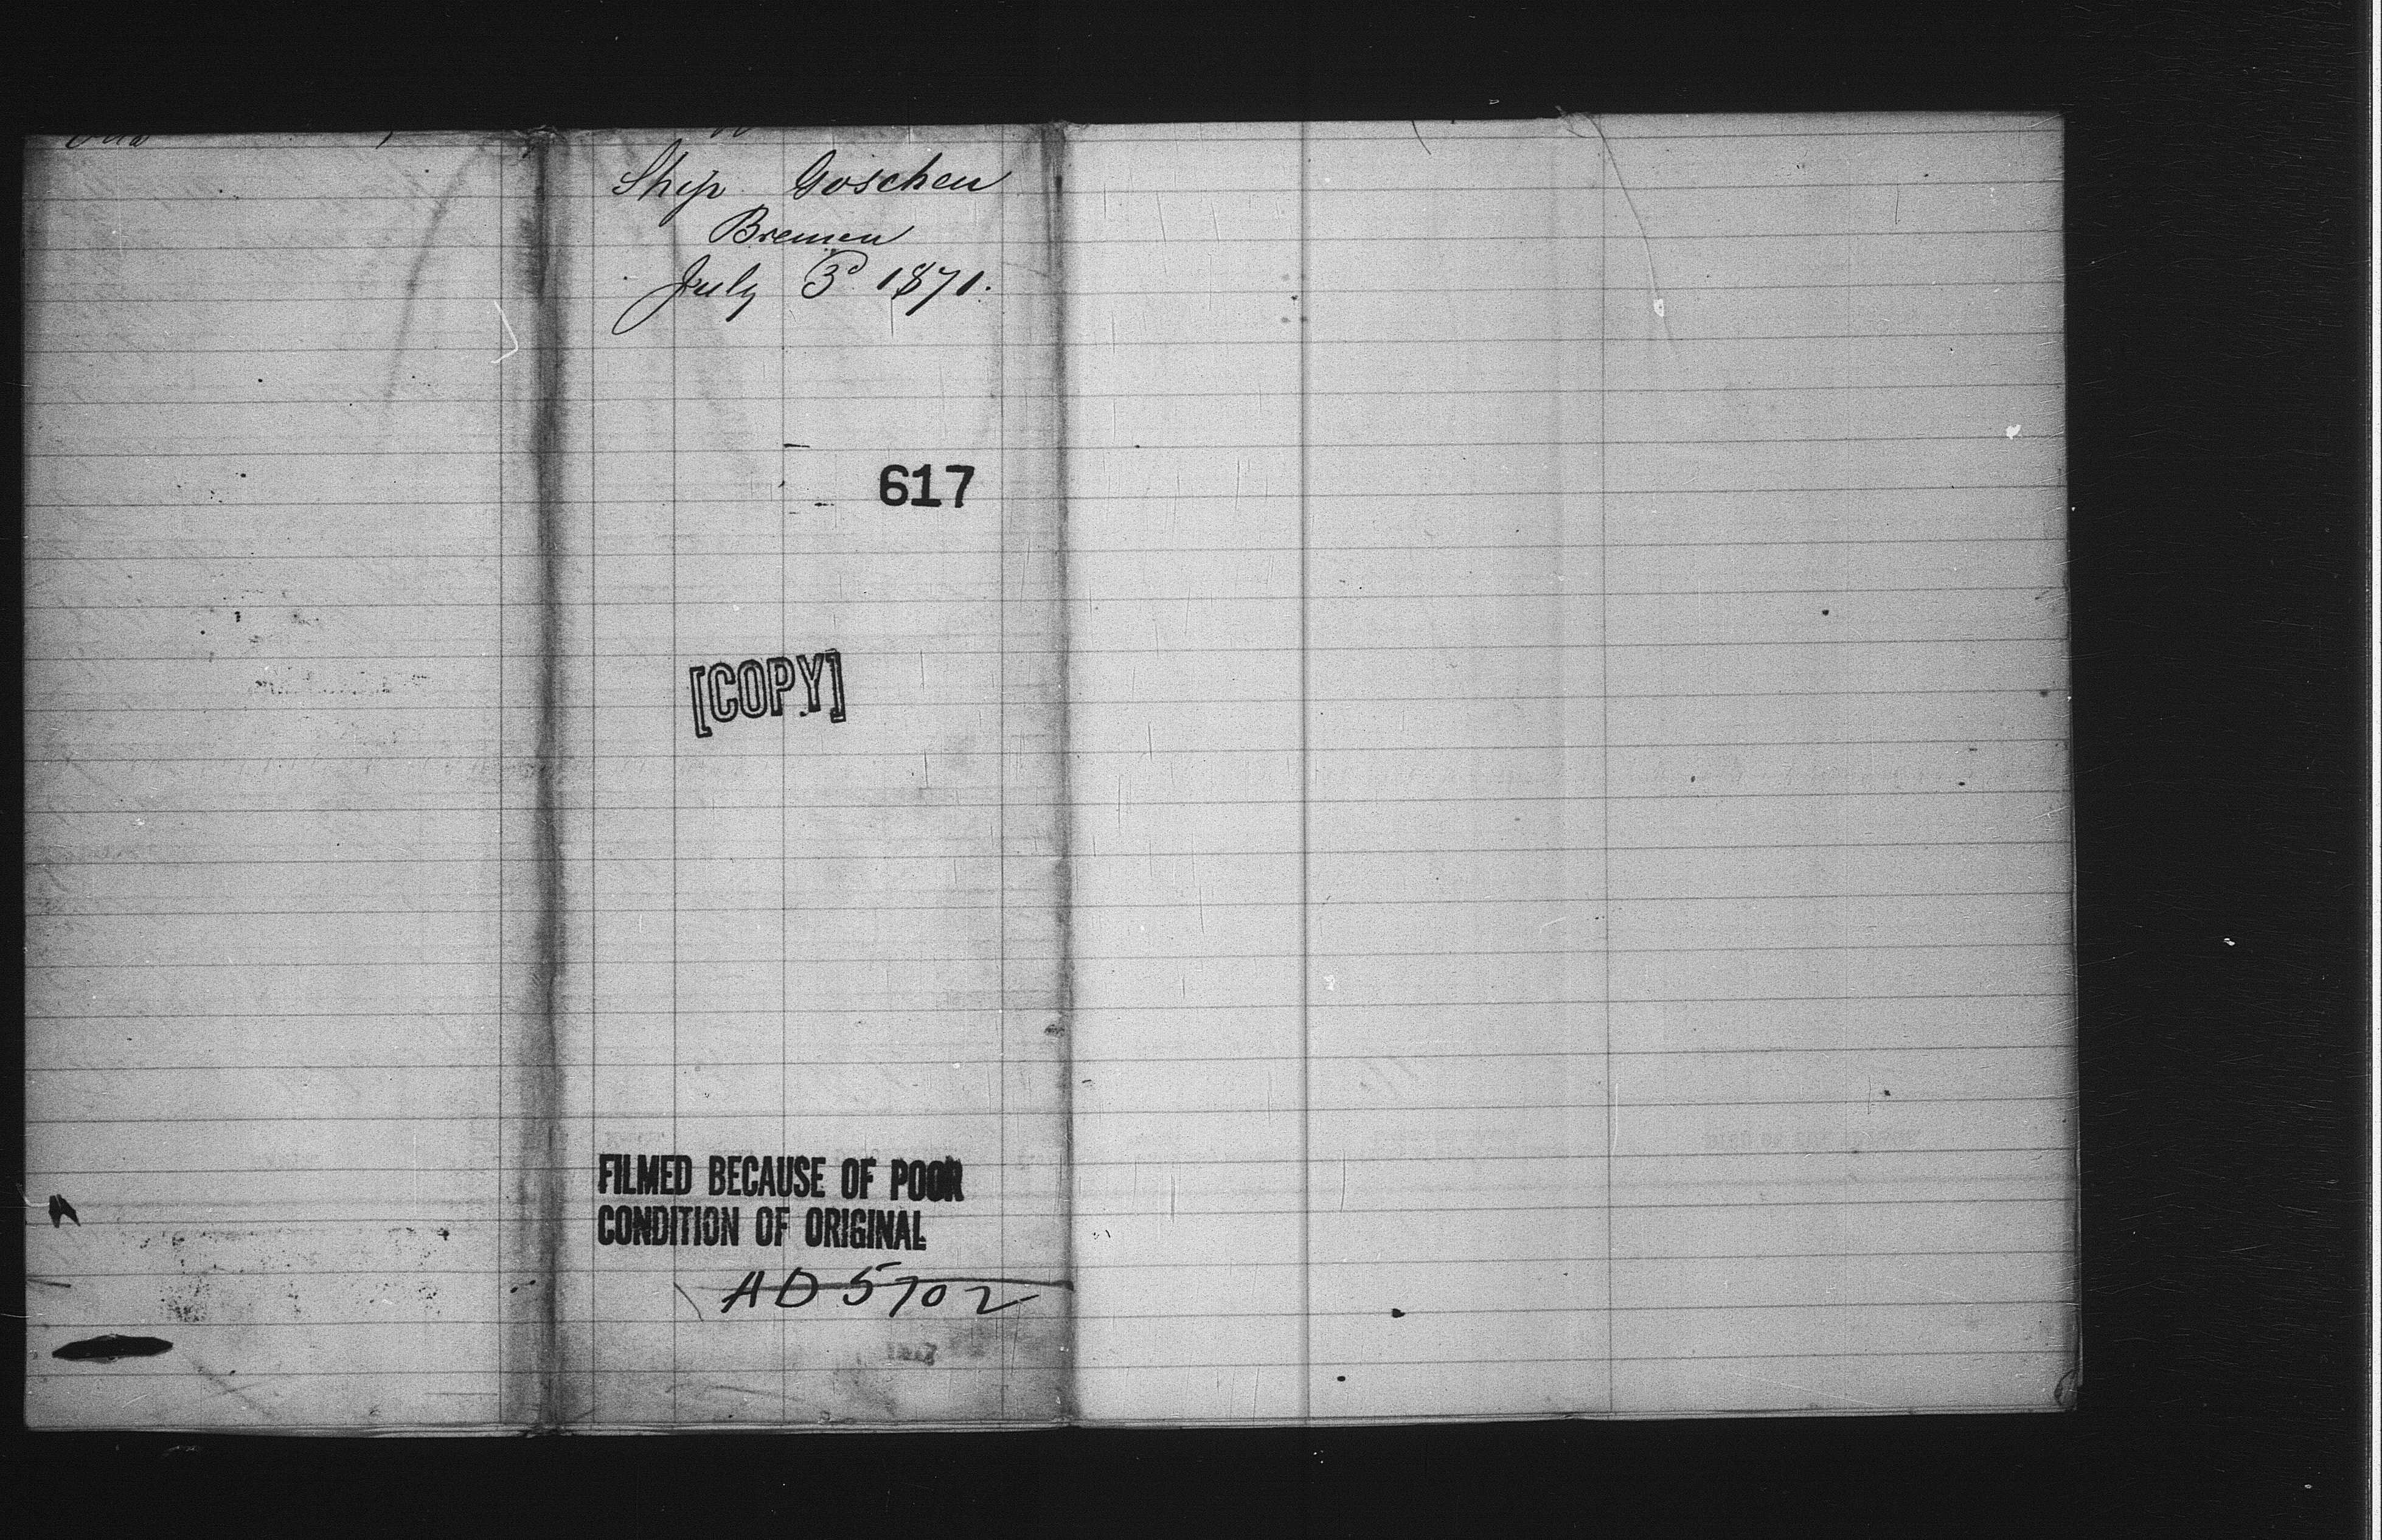 Ship Goschen
Bremen
July 3d 1871.
617
[COPY]
FILMED BECAUSE OF POOR
CONDITION OF ORIGINAL
AD 5702